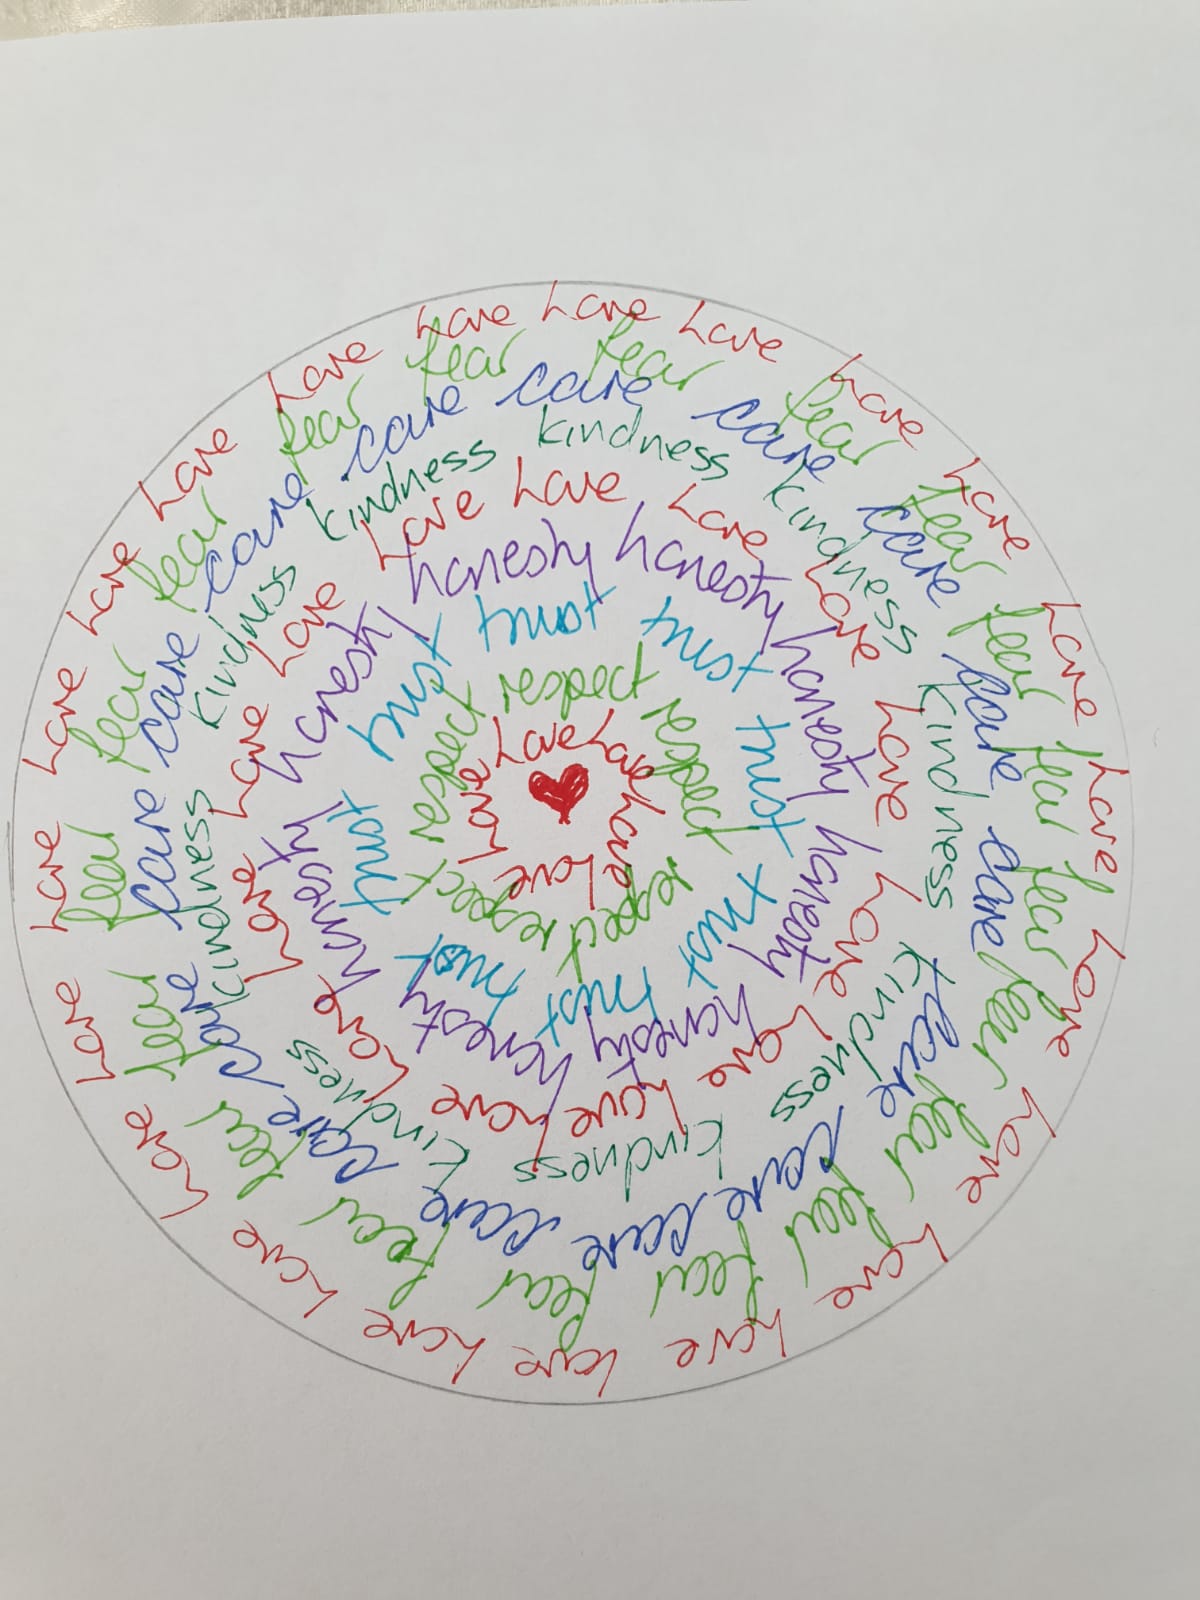 Love Love Love Love Love Love Love Love Love Love Love Love Love Love Love Love Love Love Love Love Love
fear fear fear fear fear fear fear fear fear fear fear fear fear fear fear fear fear fear fear
care care care care care care care care care care care care care care care
kindness kindness kindness kindness kindness kindness kindness kindness kindness
Love Love Love Love Love Love Love Love Love Love Love Love Love
honesty honesty honesty honesty honesty honesty honesty honesty
trust trust trust trust trust trust trust trust
respect respect respect respect respect
Love Love Love Love Love